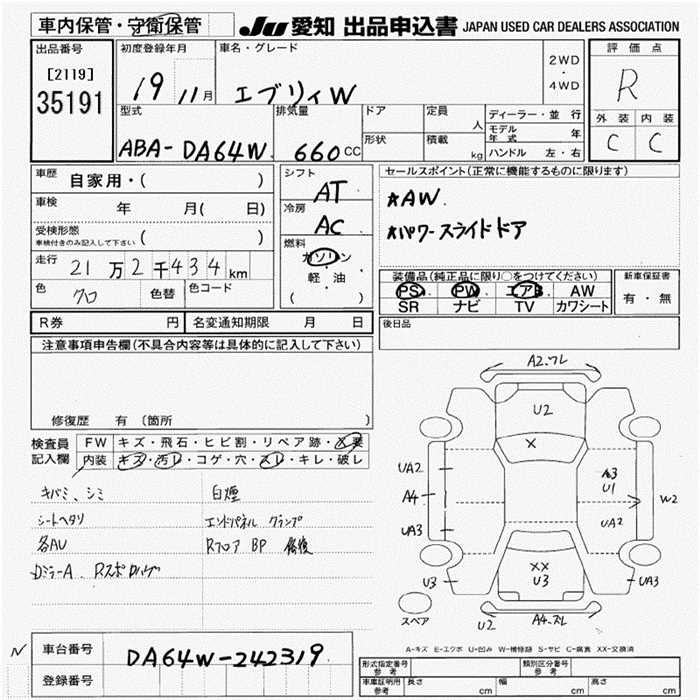 車内保管・守衛保管
JU 愛知 出品申込書 JAPAN USED CAR DEALERS ASSOCIATION
出品番号
[2119]
35191
初度登録年月
19 11月
車名・グレード
エブリィW
2WD
・
4WD
評価点
R
外装 内装
C C
型式
ABA-DA64W
排気量
660cc
ドア
形状
定員
人
積載
kg
ディーラー・並行
モデル年式 年
ハンドル 左・右
車歴
自家用・( )
車検 年 月( 日)
受検形態
車検付きのみ記入して下さい ( )
走行 21万2千434km
色 クロ
色替
色コード
シフト
AT
冷房
AC
燃料
ガソリン
軽・油
( )
セールスポイント(正常に機能するものに限ります)
*AW
*パワースライドドア
装備品(純正品に限り○をつけてください)
PS PW エアB AW
SR ナビ TV カワシート
新車保証書
有・無
R券 円 名変通知期限 月 日
後日品
注意事項申告欄(不具合内容等は具体的に記入して下さい)
修復歴 有 (箇所 )
検査員
記入欄
FW キズ・飛石・ヒビ割・リペア跡・X要
内装 キズ・汚レ・コゲ・穴・スレ・キレ・破レ
キバミ、シミ
シートヘタリ
各AU
白煙
エンドパネル クランプ
Rフロア BP 修復
A2.ワレ
U2
X
UA2
A4
UA3
U3
A3
U1
UA2
W2
UA3
XX
U3
スペア
U2
A4.スレ
A-キズ E-エクボ U-凹み W-補修跡 S-サビ C-腐食 XX-交換済
N
車台番号 DA64W-242319
登録番号
形式指定番号 参考
類別区分番号 参考
車庫証明用 参考 長さ cm 幅 cm 高さ cm